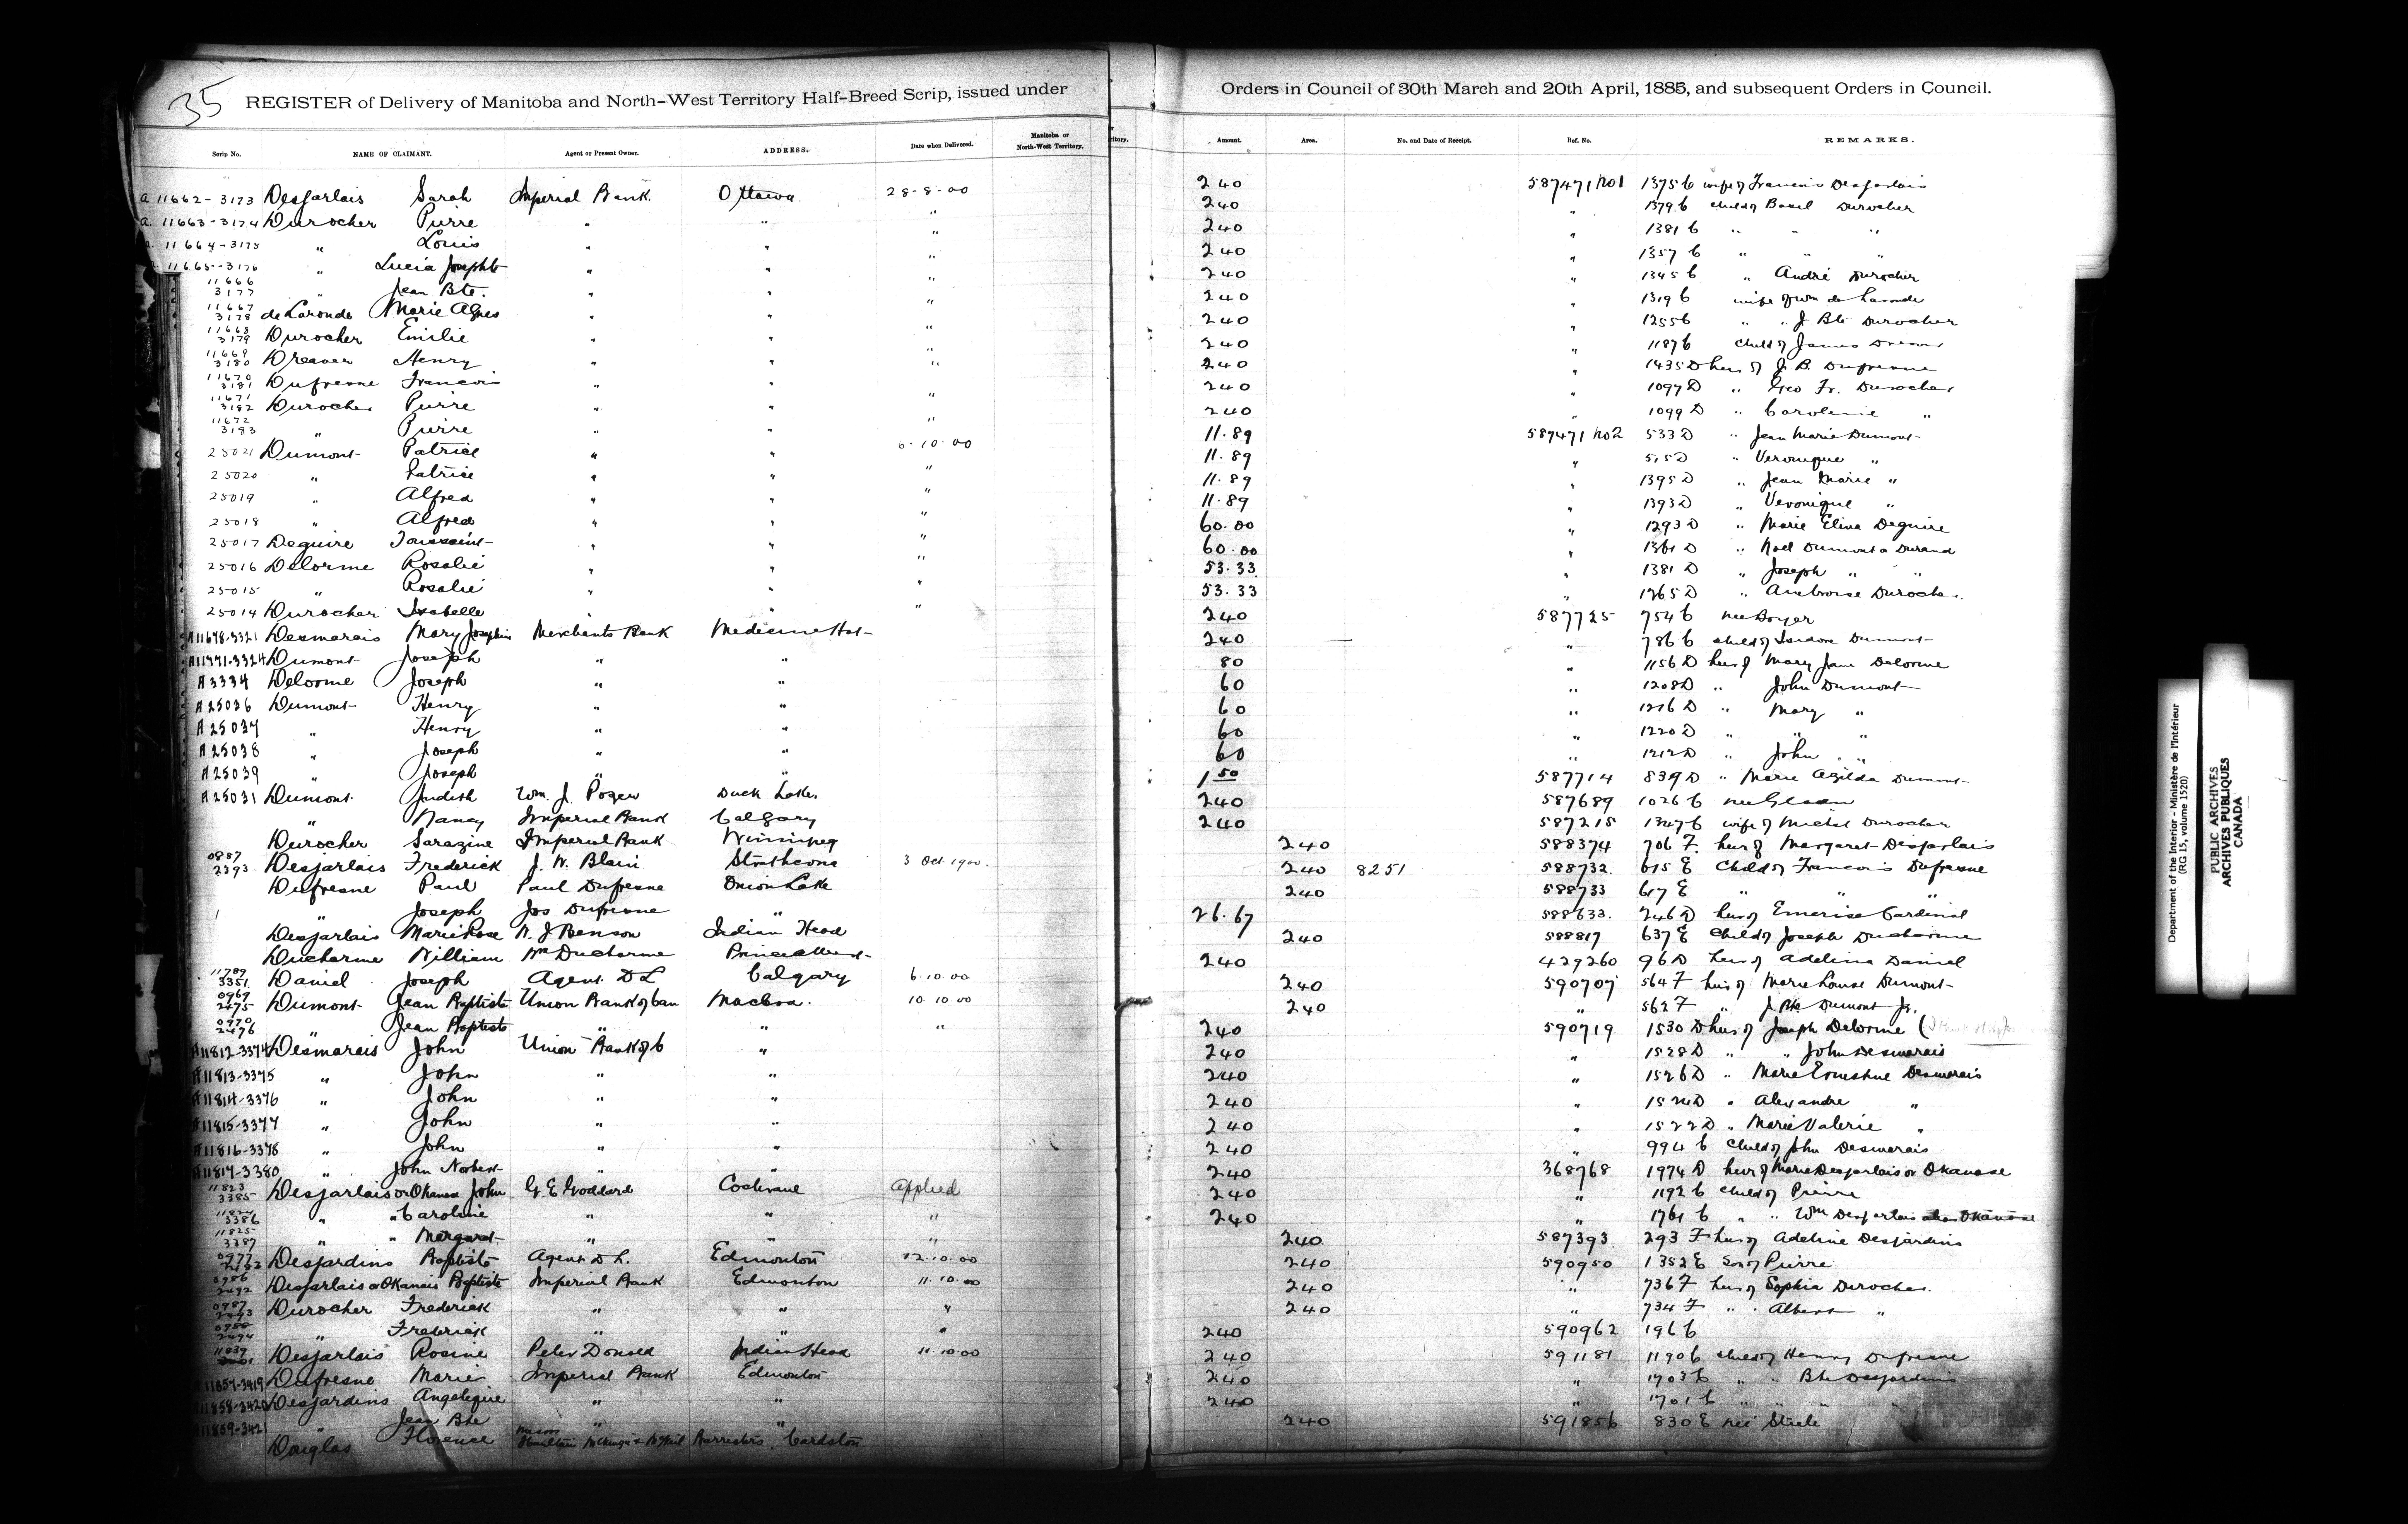 35 REGISTER of Delivery of Manitoba and North-West Territory Half-Breed Scrip, issued under Orders in Council of 30th March and 20th April, 1885, and subsequent Orders in Council.
Scrip No. NAME OF CLAIMANT. Agent or Present Owner. ADDRESS. Date when Delivered. Manitoba or North-West Territory. Amount. Area. No. and Date of Receipt. Ref. No. REMARKS.
a 11662-3173 Desjarlais Sarah Imperial Bank. Ottawa 28-8-00 240 587471 No1 1375 C wife of Francois Desjarlais
a. 11663-3174 Durocher Pierre " " " 240 " 1379 C child of Basil Durocher
11664-3175 " Louis " " " 240 " 1381 C " " "
11665-3176 " Lucia Josephte " " " 240 " 1357 C " " "
11666 3177 " Jean Bte. " " " 240 " 1345 C " André Durocher
11667 3178 de Laronde Marie Agnes " " " 240 " 1319 C wife of Wm de Laronde
11668 3179 Durocher Emilie " " " 240 " 1255 C " " J. Bte Durocher
11669 3180 Dreaver Henry " " " 240 " 1187 C child of James Dreaver
11670 3181 Dufresne Francois " " 240 " 1435 D heir of J. B. Dufresne
11671 3182 Durocher Pierre " " " 240 " 1097 D " Geo Fr. Durocher
11672 3183 " Pierre " " " 240 " 1099 D " Caroline "
25021 Dumont Patrice " " 6-10-00 11.89 587471 No2 533 D " Jean Marie Dumont
25020 " Patrice " " " 11.89 " 515 D " Veronique "
25019 " Alfred " " " 11.89 " 1395 D " Jean Marie "
25018 " Alfred " " " 11.89 " 1393 D " Veronique "
25017 Deguire Toussaint " " " 60.00 " 1293 D " Marie Elina Deguire
25016 Delorme Rosalie " " " 60.00 " 1361 D " Noel Dumont or Durand
25015 " Rosalie " " " 53.33 " 1381 D " Joseph " "
25014 Durocher Isabelle " " " 53.33 " 1265 D " Ambroise Durocher.
A11678-3321 Desmarais Mary Josephine Merchants Bank Medicine Hat 240 587725 754 C nee Boyer
A11771-3324 Dumont Joseph " " 240 " 786 C child of Isidore Dumont
A 3334 Delorme Joseph " " 80 " 1156 D heir of Mary Jane Delorme
A 25036 Dumont Henry " " 60 " 1208 D " John Dumont
A 25037 " Henry " " 60 " 1216 D " Mary "
A 25038 " Joseph " " 60 " 1220 D " " "
A 25039 " Joseph " " 60 " 1212 D " John "
A 25031 Dumont Judith Wm. J. Duck Lake. 1 50 587714 839 D " Marie Azilda Dumont
" Nancy Imperial Bank Calgary 240 587689 1026 C nee
Durocher Sarazine Imperial Bank Winnipeg 240 587215 1347 C wife of Michel Durocher
0887 2393 Desjarlais Frederick J. W. Blain Strathcona 3 Oct. 1900. 240 588374 706 F. heir of Margaret Desjarlais
Dufresne Paul Paul Dufresne Onion Lake 240 8251 588732. 615 E Child of Francois Dufresne
" Joseph Jos Dufresne " 240 588733 617 E " "
Desjarlais Marie Rose N. J. Benson Indian Head 26.67 588633. 246 D heir of Emerise Cardinal
Ducharme William Wm Ducharme Prince Albert 240 588817 637 E Child of Joseph Ducharme
11789 3351 Daniel Joseph Agent. D L Calgary 6.10.00 240 429260 96 D heir of Adelina Daniel
0969 2475 Dumont Jean Baptiste Union Bank of Can Macleod. 10.10.00 240 590707 564 F heir of Marie Louise Dumont
0970 2476 " Jean Baptiste " " " 240 " 562 F " J. Bte Dumont Jr.
A11812-3374 Desmarais John Union Bank of C " 240 590719 1530 D heir of Joseph Delorme
A11813-3375 " John " " 240 " 1528 D " " John Desmarais
A11814-3376 " John " " 240 " 1526 D " Marie Ernestine Desmarais
A11815-3377 " John " " 240 " 1524 D " Alexandre "
A11816-3378 " John " " 240 " 1522 D " Marie Valerie "
A11817-3380 " John Norbert " " 240 " 994 C Child of John Desmarais
11823 3385 Desjarlais or Okanese John G. E. Goddard Cochrane Applied 240 368768 1974 D heir of Marie Desjarlais or Okanase
3386 " " Caroline " " " 240 " 1192 C child of Pierre
11825 3387 " " Margaret " " " 240 " 1761 C " " Wm Desjarlais alias Okanase
0977 Desjardins Baptiste Agent D L. Edmonton 12-10-00 240 587393 293 F heir of Adeline Desjardins
0986 2492 Desjarlais or Okanais Baptiste Imperial Bank Edmonton 11.10.00 240 590950 1352 E Son of Pierre
0987 2493 Durocher Frederick " " " 240 " 736 F heir of Sophia Durocher.
2494 " Frederick " " " 240 " 734 F " Albert "
11839 Desjarlais Rosine Peter Donald Indian Head 11.10.00 240 590962 196 C
11857-3419 Dufresne Marie Imperial Bank Edmonton 240 591181 1190 C child of Henry Dufresne
11858-3420 Desjardins Angelique " " 240 " 1703 C " " Bte Desjardins
11859-3421 " Jean Bte " " 240 1701 C
Douglas Florence Barristers, Cardston 240 591856 830 E nee Steele
Department of the Interior - Ministère de l'Intérieur
(RG 15, volume 1520)
PUBLIC ARCHIVES
ARCHIVES PUBLIQUES
CANADA